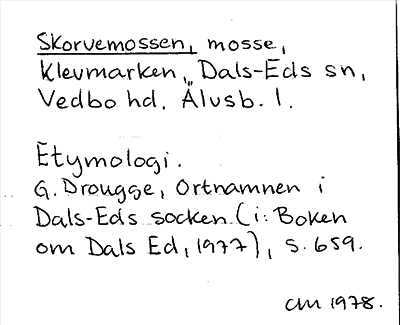 Skorvemossen, mosse,
Klevmarken, Dals-Eds sn,
Vedbo hd, Älvsb. l.
Etymologi.
G. Drougge, Ortnamnen i
Dals-Eds socken. (i: Boken
om Dals Ed, 1977), s. 659.
CM 1978.